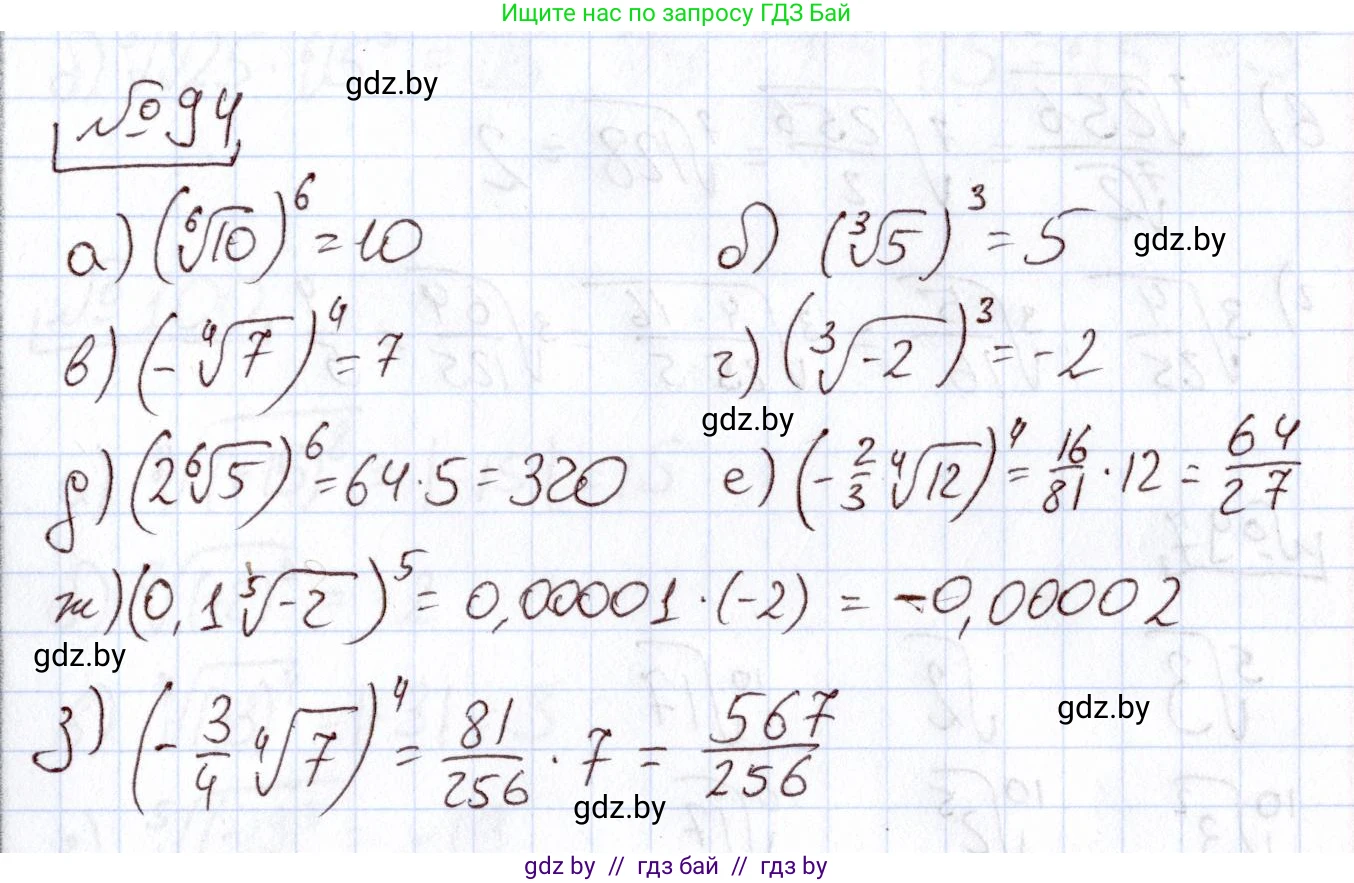 Ищите нас по запросу ГДЗ Бай
№ 94
gdz.by
а) (⁶√10)⁶ = 10
б) (³√5)³ = 5
gdz.by
в) (-⁴√7)⁴ = 7
г) (³√-2)³ = -2
gdz.by
д) (2⁶√5)⁶ = 64·5 = 320
е) (-2/3 ⁴√12)⁴ = 16/81 · 12 = 64/27
ж) (0,1 ⁵√-2)⁵ = 0,00001 · (-2) = -0,00002
gdz.by
з) (-3/4 ⁴√7)⁴ = 81/256 · 7 = 567/256
gdz.by
gdz.by
gdz by // гдз бай // гдз by